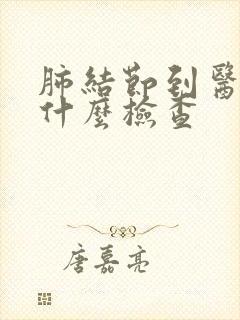 肺結節到醫
什麼檢查
唐嘉亮